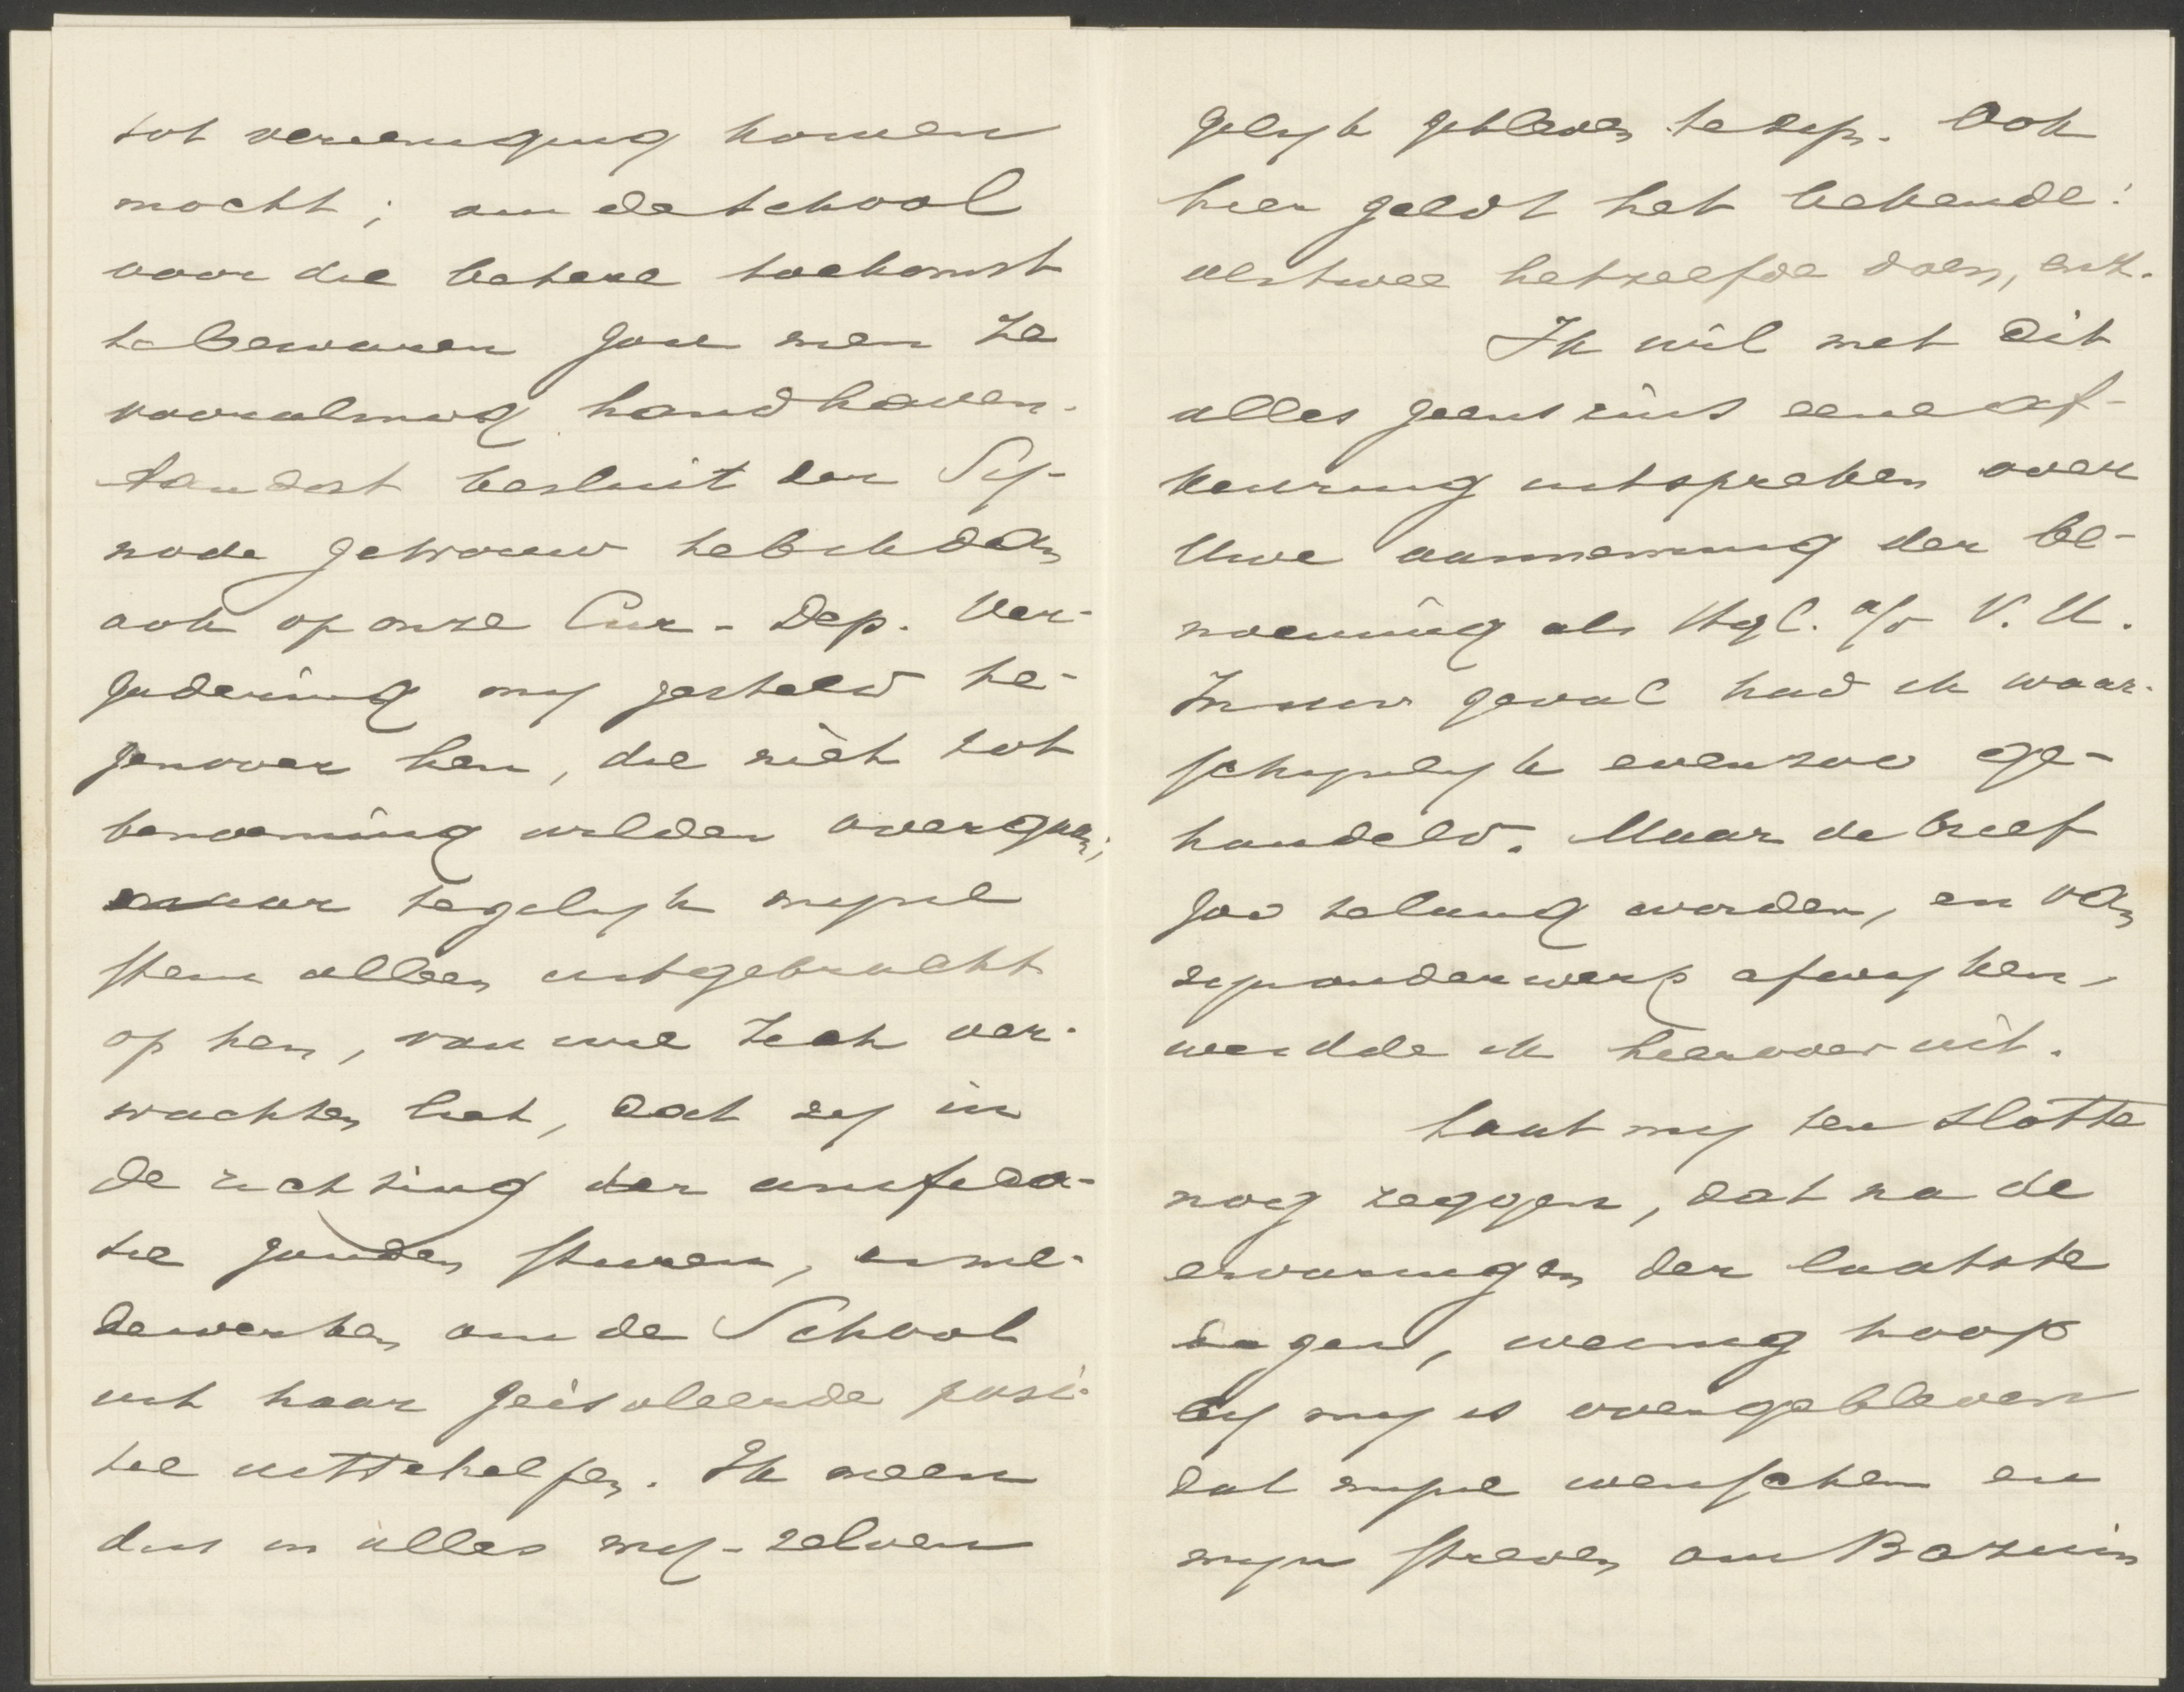 tot vereeniging komen
mocht; om de school
voor die betere toekomst
te bewaren zou men ze
vooralsnog handhaven.
Aan dat besluit der Sy-
node getrouw heb ik dan
ook op onze Cur-Dep. Ver-
gadering mij gesteld te-
genover hen, die niet tot
benoeming wilden overgaan;
maar tegelijk mijne
stem alleen uitgebracht
op hen, van wie zich ver-
wachten liet, dat zij in
de richting der unifica-
tie zouden sturen, en me-
dewerken om de School
uit haar geisoleerde posi-
tie uit te helpen. Ik meen
dus in alles mij-zelven
gelijk gebleven te zijn. Ook
hier geldt het bekende:
als twee hetzelfde doen, enz.
Ik wil met dit
alles geenszins eene af-
keuring uitspreken over
Uwe aanneming der be-
noeming als Hgl. a/d V.U.
In uw geval had ik waar-
schijnlijk evenzoo ge-
handeld. Maar de brief
zou te lang worden, en van
zijn onderwerp afwijken,
weidde ik hierover uit.
Laat mij ten slotte
nog zeggen, dat na de
ervaringen der laatste
dagen, weinig hoop
bij mij is overgebleven
dat mijne wenschen en
mijn streven om Bazuin